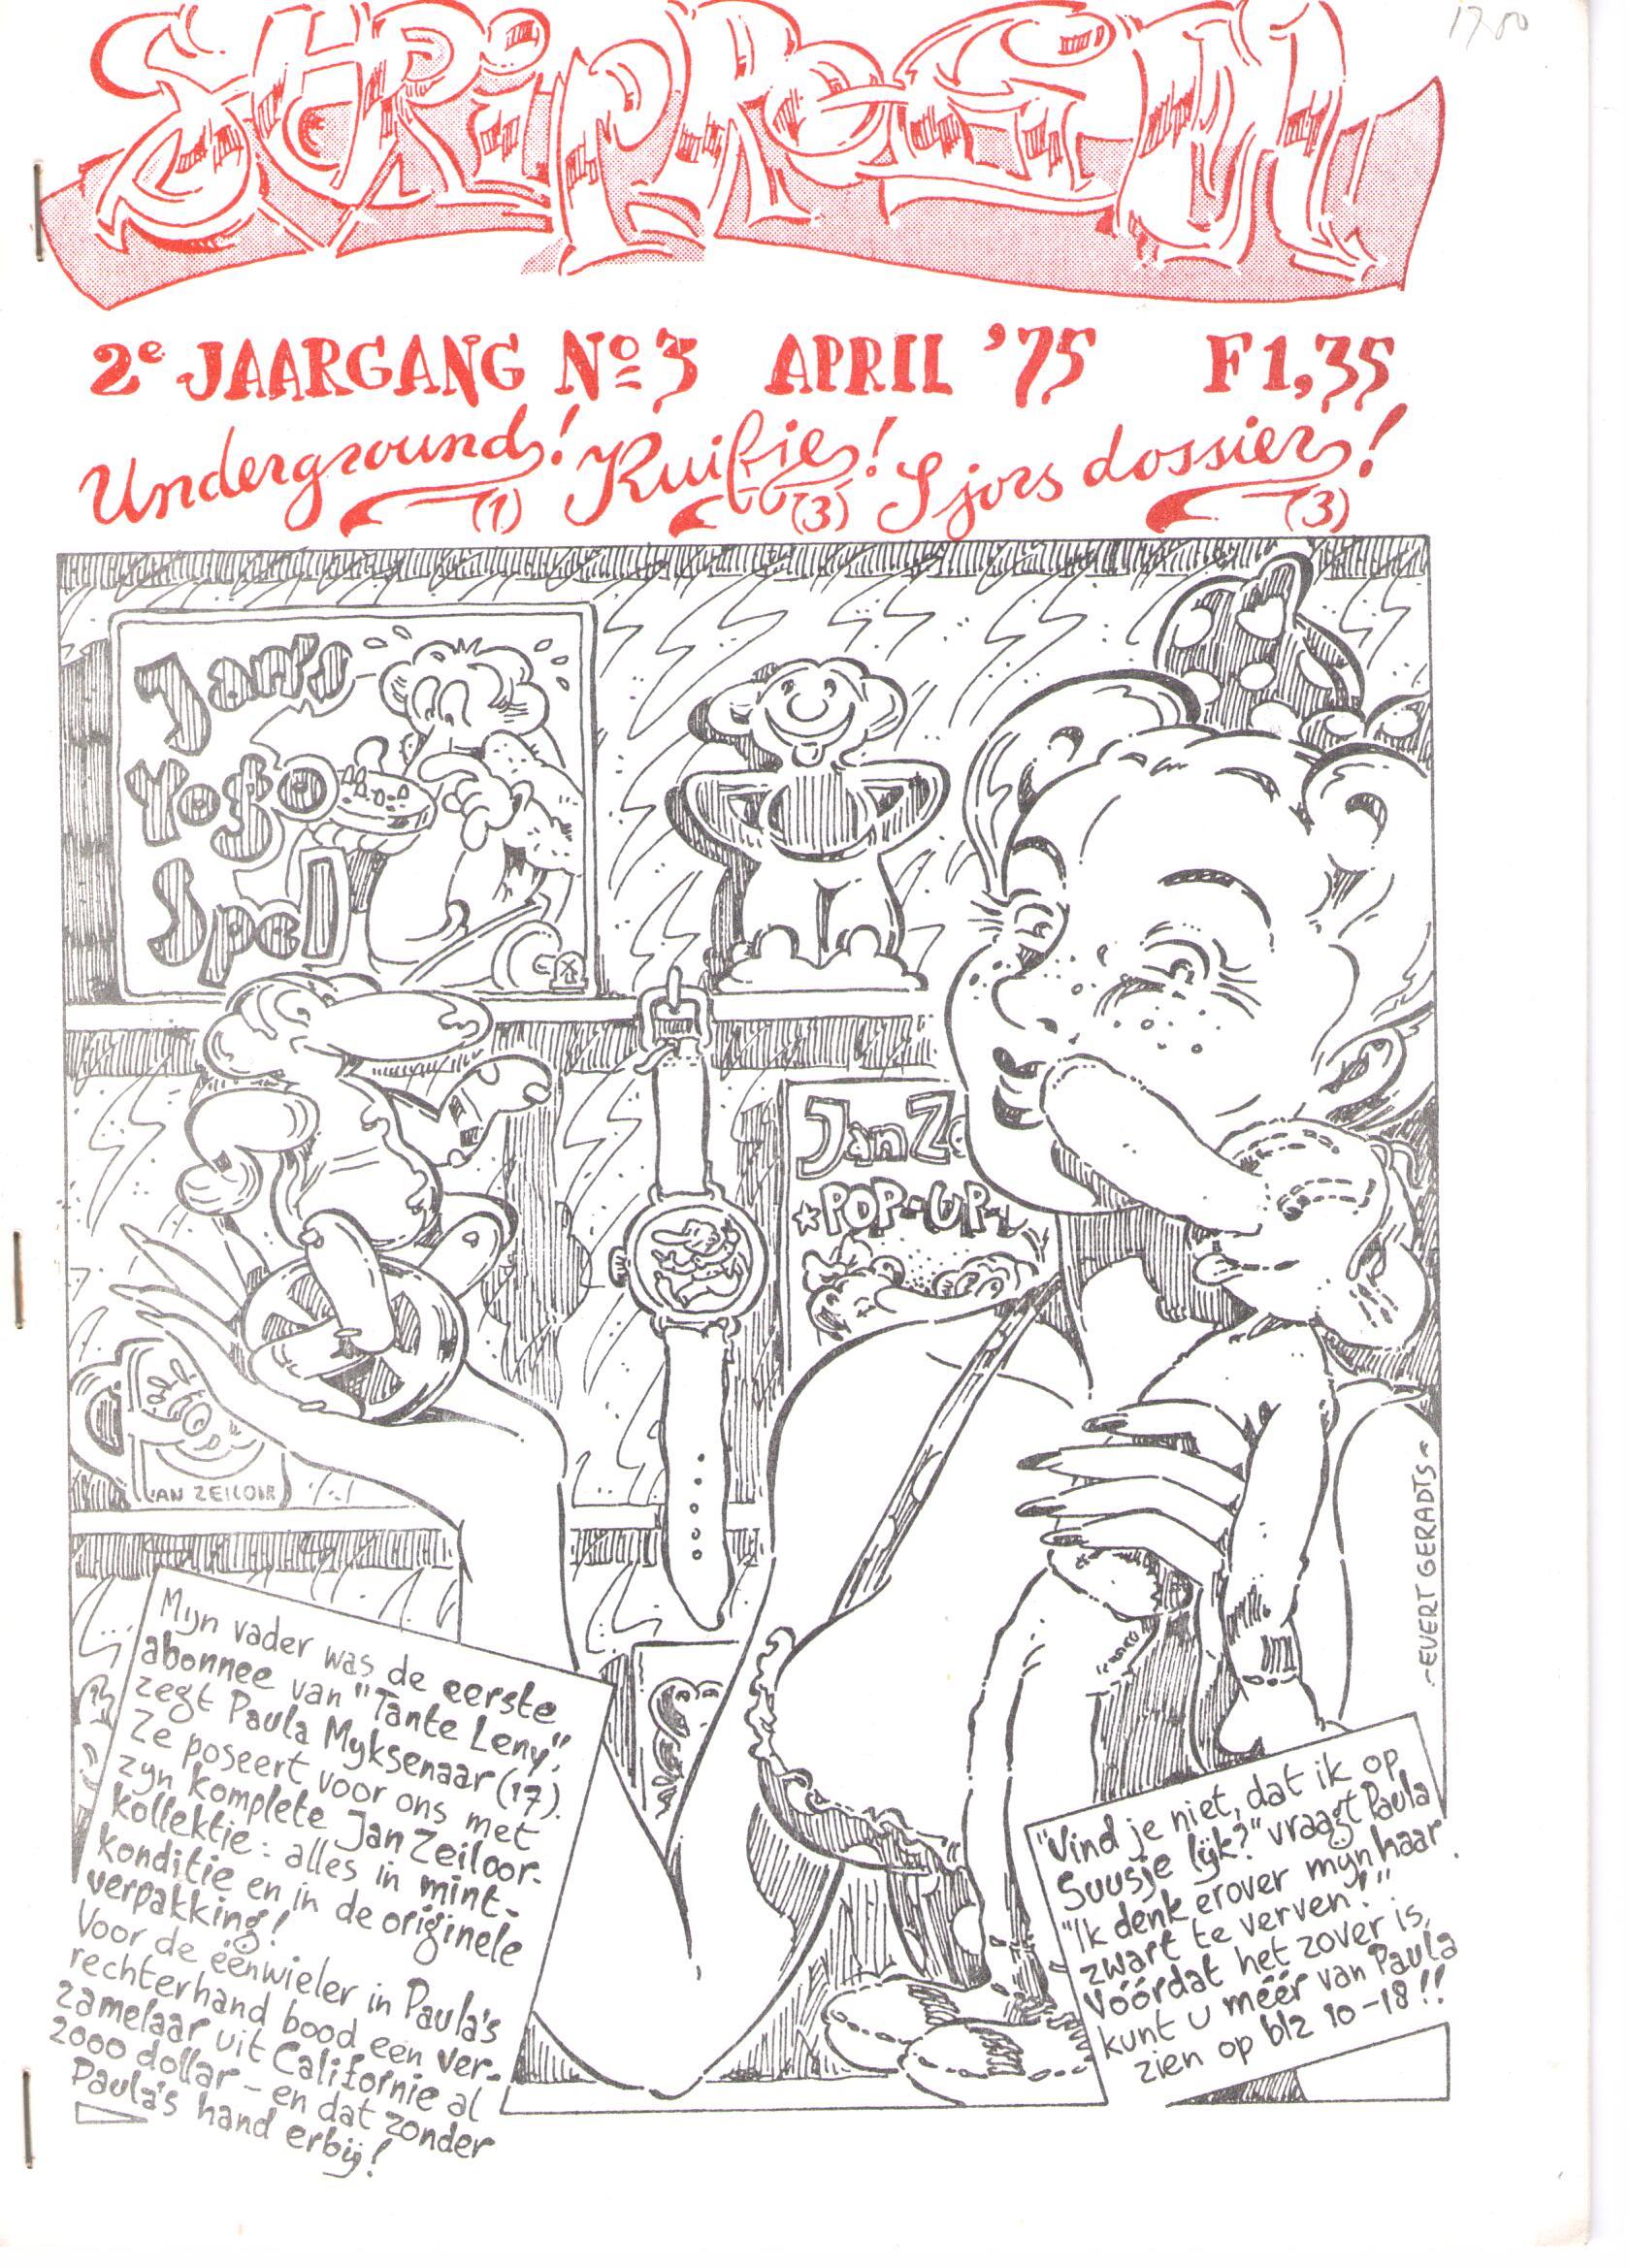 17.50
StripRofiel
2e JAARGANG No 3 APRIL '75 F1,35
Underground! Kuifje! Sjors dossier!
(1) (3) (3)
Jan's
Yoyo
Spel
Jan Ze
*POP-UP-
JAN ZEILOOR
~EVERT GERADTS~
Mijn vader was de eerste
abonnee van "Tante Leny",
zegt Paula Myksenaar (17).
Ze poseert voor ons met
zyn komplete Jan Zeiloor-
kollektie: alles in mint-
konditie en in de originele
verpakking!
Voor de éénwieler in Paula's
rechterhand bood een ver-
zamelaar uit Californie al
2000 dollar - en dat zonder
Paula's hand erbij!
"Vind je niet, dat ik op
Suusje lijk?" vraagt Paula
"Ik denk erover mijn haar
zwart te verven!"
Vóórdat het zover is,
kunt u méér van Paula
zien op blz 10-18!!